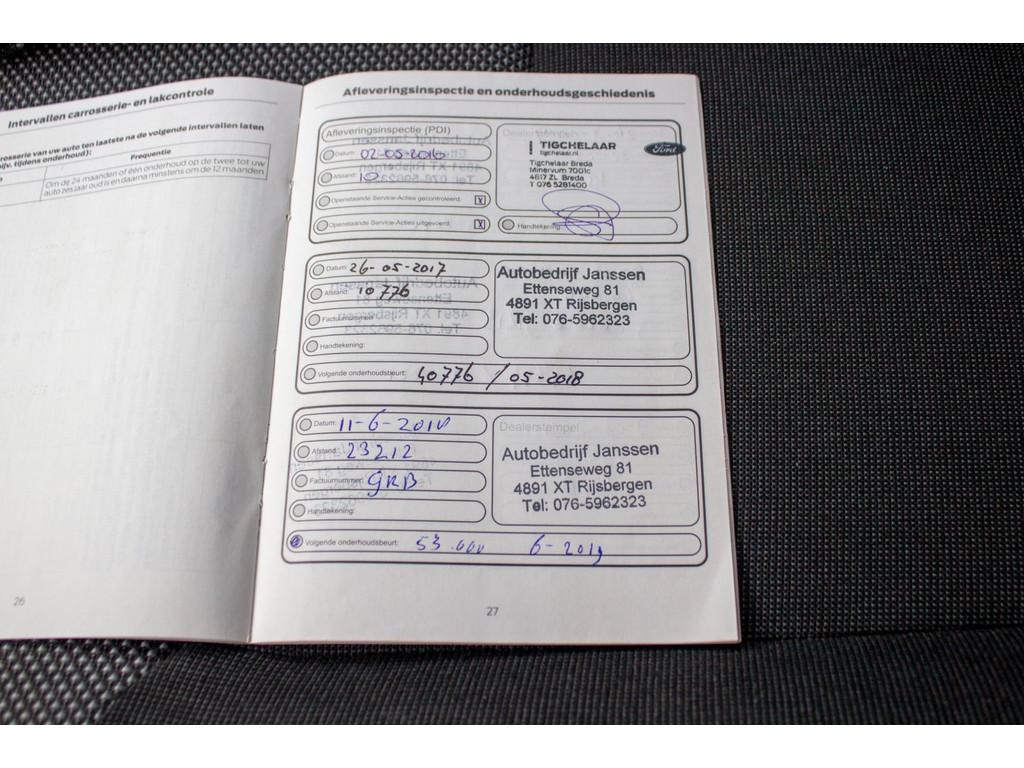 Intervallen carrosserie- en lakcontrole
rosserie van uw auto ten laatste na de volgende intervallen laten
bijv. tijdens onderhoud):
Frequentie
Om de 24 maanden of één onderhoud op de twee tot uw
auto zes jaar oud is en daarna minstens om de 12 maanden
26
Afleveringsinspectie en onderhoudsgeschiedenis
Afleveringsinspectie (PDI)
Datum: 02-05-2016
Afstand: 10
Openstaande Service-Acties gecontroleerd: X
Openstaande Service-Acties uitgevoerd: X
Dealerstempel
TIGCHELAAR
tigchelaar.nl
Ford
Tigchelaar Breda
Minervum 7001c
4817 ZL Breda
T 076 5281400
Handtekening:
Datum: 26-05-2017
Afstand: 10776
Factuurnummer:
Handtekening:
Volgende onderhoudsbeurt: 40776 / 05-2018
Autobedrijf Janssen
Ettenseweg 81
4891 XT Rijsbergen
Tel: 076-5962323
Datum: 11-6-2018
Afstand: 23212
Factuurnummer: GRB
Handtekening:
Volgende onderhoudsbeurt: 53.000 6-2019
Dealerstempel
Autobedrijf Janssen
Ettenseweg 81
4891 XT Rijsbergen
Tel: 076-5962323
27